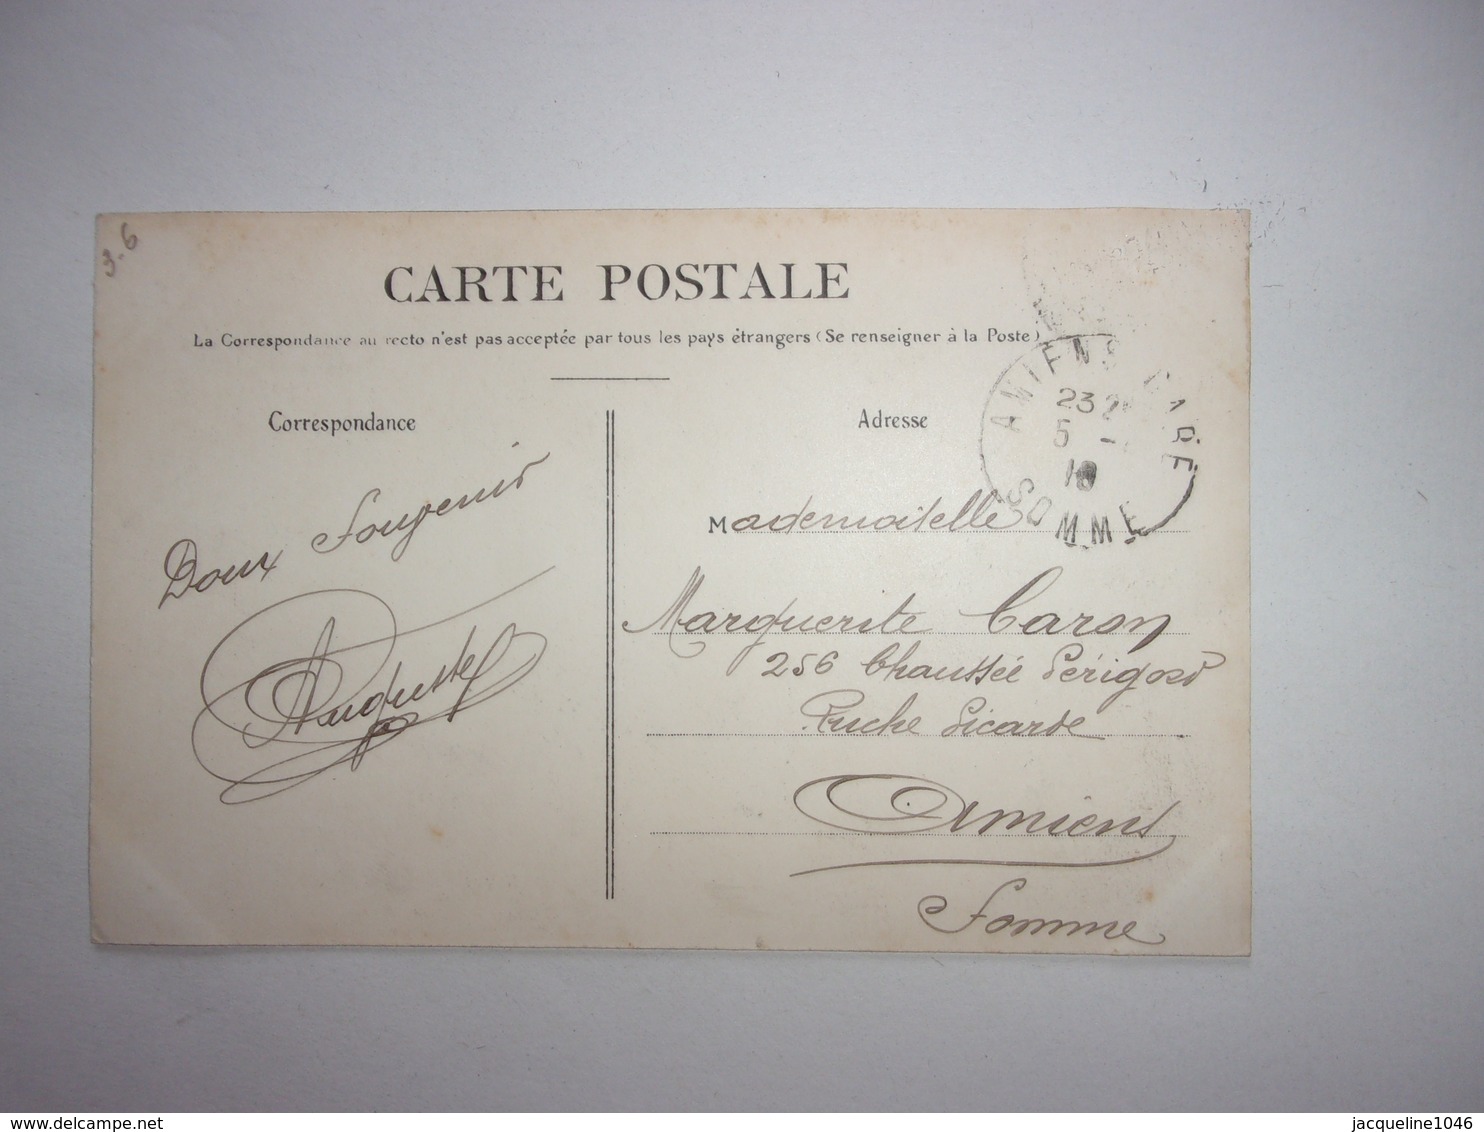 3.6
CARTE POSTALE
La Correspondance au recto n'est pas acceptée par tous les pays étrangers (Se renseigner à la Poste)
Correspondance
Doux Souvenir
Auguste
Adresse
AMIENS GARE
23
5 -
10
SOMME
Mademoiselle
Marguerite Caron
256 Chaussée Périgord
Ruche Picarde
Amiens
Somme
delcampe.net
jacqueline1046